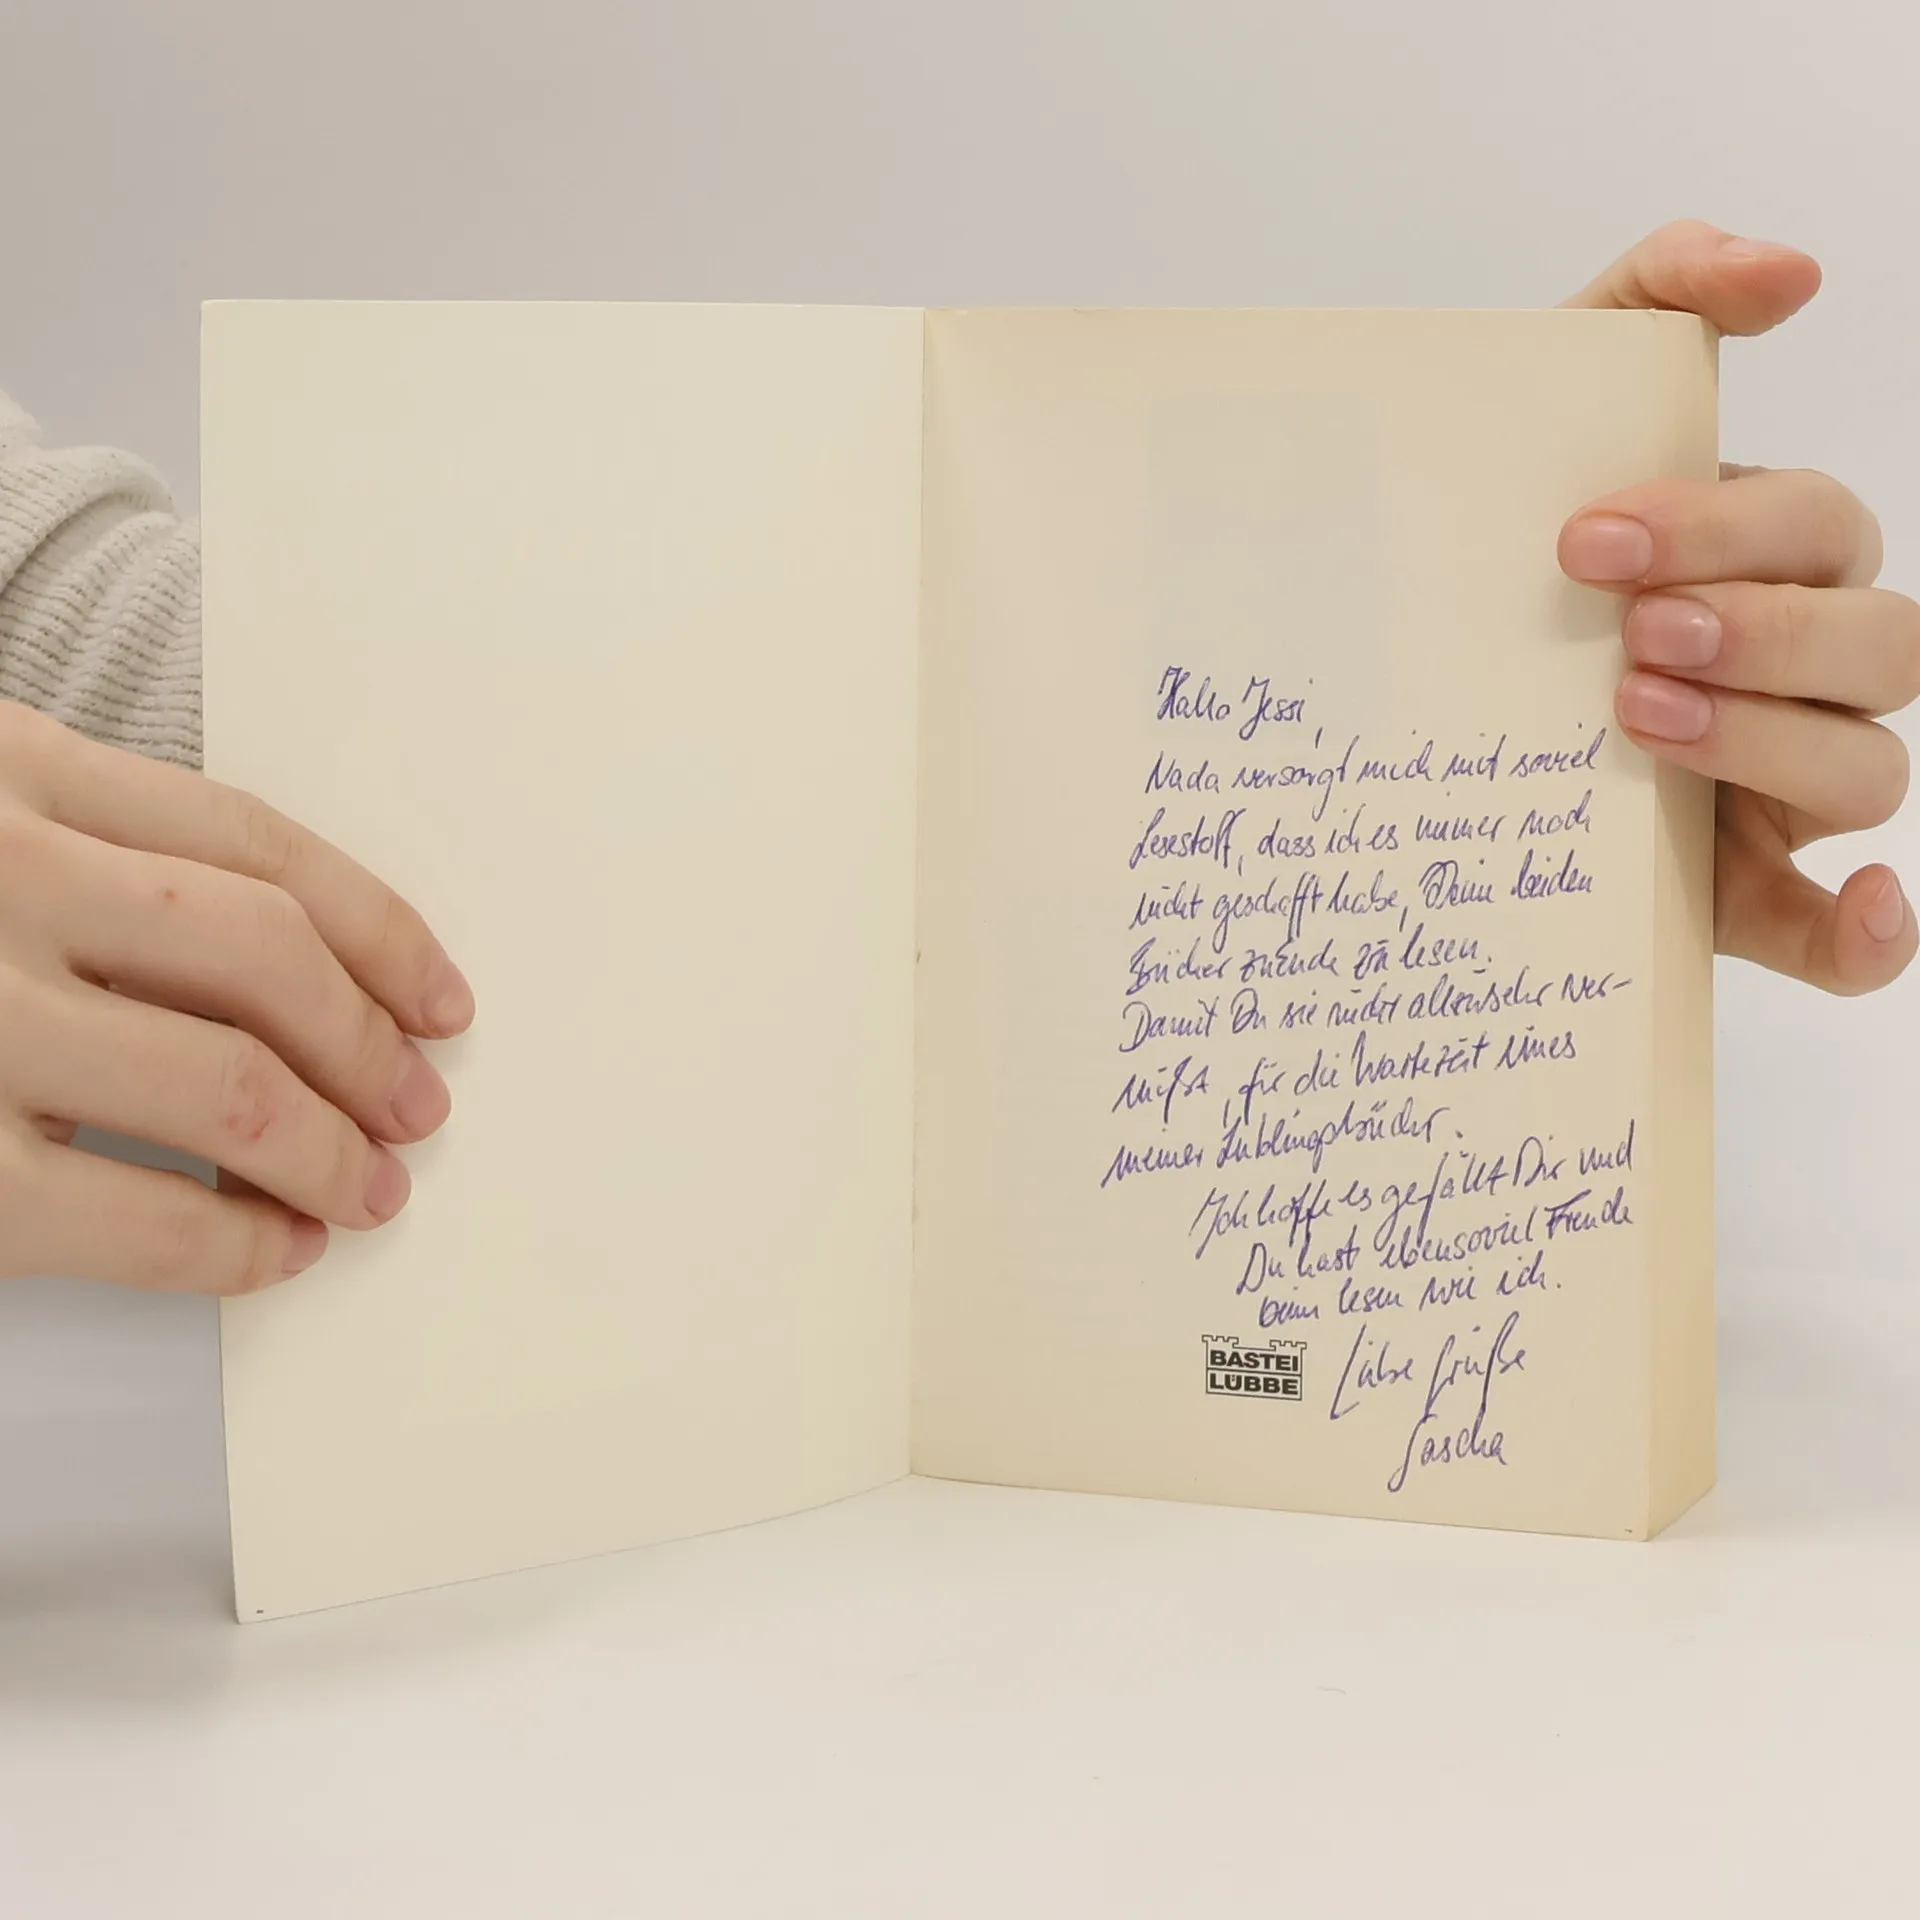 Hallo Jessi,
Nada versorgt mich mit soviel
Lesestoff, dass ich es immer noch
nicht geschafft habe, Deine beiden
Bücher zuende zu lesen.
Damit Du sie nicht allzusehr ver-
mißt, für die Wartezeit eines
meiner Lieblingsbücher.
Ich hoffe es gefällt Dir und
Du hast ebensoviel Freude
beim lesen wie ich.
BASTEI
LÜBBE
Liebe Grüße
Sascha